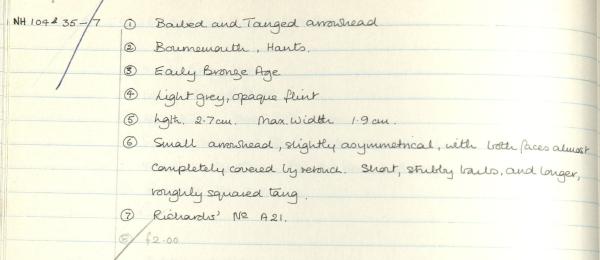 NH 104 & 35-7 ① Barbed and Tanged arrowhead
② Bournemouth, Hants.
③ Early Bronze Age
④ Light grey, opaque flint
⑤ Lgth. 2.7cm. Max. Width 1.9cm.
⑥ Small arrowhead, slightly asymmetrical, with both faces almost
completely covered by retouch. Short, stubby barbs, and longer,
roughly squared tang.
⑦ Richards' No A21.
⑧ £2.00